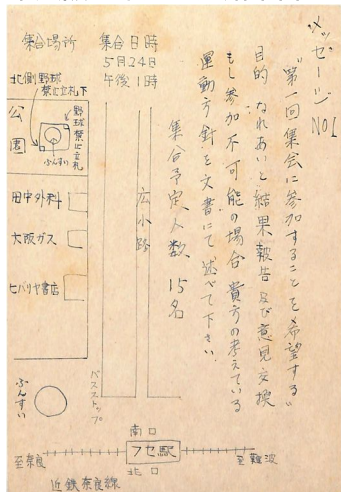 メッセージ NO1
"第一回集会に参加することを希望する"
目的 なれあいと結果報告及び意見交換
もし参加不可能の場合 貴方の考えている
運動方針を文書にて述べて下さい.
集合予定人数 15名
集合日時
5月24日
午後1時
集合場所
北側野球
禁止立札下
野球禁止立札
公園
ふんすい
田中外科
大阪ガス
ヒバリヤ書店
広小路
バスストップ
ふんすい
南口
フセ駅
北口
至奈良
至難波
近鉄奈良線